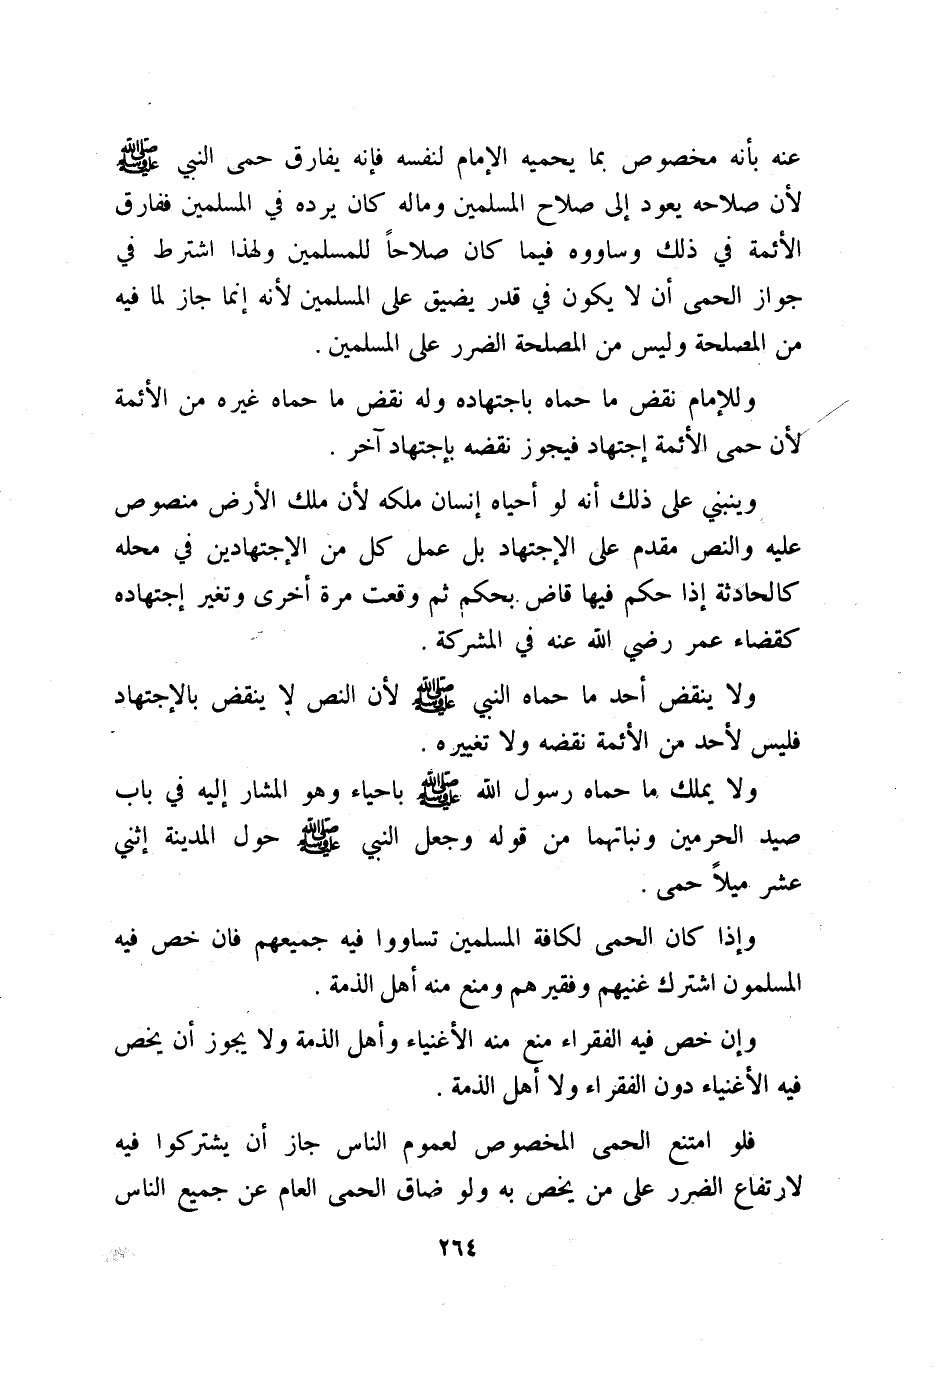 عنه بأنه مخصوص بما يحميه الإمام لنفسه فإنه يفارق حمى النبي ﷺ
لأن صلاحه يعود إلى صلاح المسلمين وماله كان يرده في المسلمين ففارق
الأئمة في ذلك وساووه فيما كان صلاحاً للمسلمين ولهذا اشترط في
جواز الحمى أن لا يكون في قدر يضيق على المسلمين لأنه إنما جاز لما فيه
من المصلحة وليس من المصلحة الضرر على المسلمين .
وللإمام نقض ما حماه باجتهاده وله نقض ما حماه غيره من الأئمة
لأن حمى الأئمة إجتهاد فيجوز نقضه بإجتهاد آخر .
وينبني على ذلك أنه لو أحياه إنسان ملكه لأن ملك الأرض منصوص
عليه والنص مقدم على الإجتهاد بل عمل كل من الإجتهادين في محله
كالحادثة إذا حكم فيها قاض بحكم ثم وقعت مرة أخرى وتغير إجتهاده
كقضاء عمر رضي الله عنه في المشركة .
ولا ينقض أحد ما حماه النبي ﷺ لأن النص لا ينقض بالإجتهاد
فليس لأحد من الأئمة نقضه ولا تغييره .
ولا يملك ما حماه رسول الله ﷺ باحياء وهو المشار إليه في باب
صيد الحرمين ونباتهما من قوله وجعل النبي ﷺ حول المدينة إثني
عشر ميلاً حمى .
وإذا كان الحمى لكافة المسلمين تساووا فيه جميعهم فان خص فيه
المسلمون اشترك غنيهم وفقيرهم ومنع منه أهل الذمة .
وإن خص فيه الفقراء منع منه الأغنياء وأهل الذمة ولا يجوز أن يخص
فيه الأغنياء دون الفقراء ولا أهل الذمة .
فلو امتنع الحمى المخصوص لعموم الناس جاز أن يشتركوا فيه
لارتفاع الضرر على من يخص به ولو ضاق الحمى العام عن جميع الناس
٢٦٤